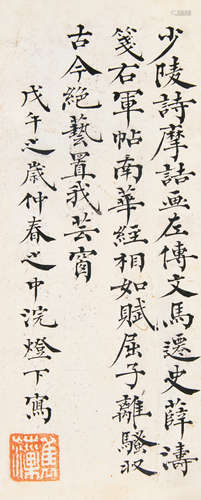 少陵詩摩詰畫左傳文馬遷史薛濤
箋右軍帖南華經相如賦屈子離騷收
古今絕藝置我芸窗
戊午之歲仲春之中浣燈下寫